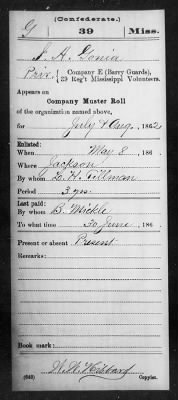 (Confederate.)
G 39 Miss.
J. A. Gonia
Priv., Company E (Barry Guards),
39 Reg't Mississippi Volunteers.
Appears on
Company Muster Roll
of the organization named above,
for July & Aug., 1862
Enlisted:
When May 8, 186
Where Jackson
By whom L. H. Tillman
Period 3 yrs.
Last paid:
By whom B. Mickle
To what time 30 June, 186
Present or absent Present
Remarks:
Book mark:
Hibbard
(642) Copyist.